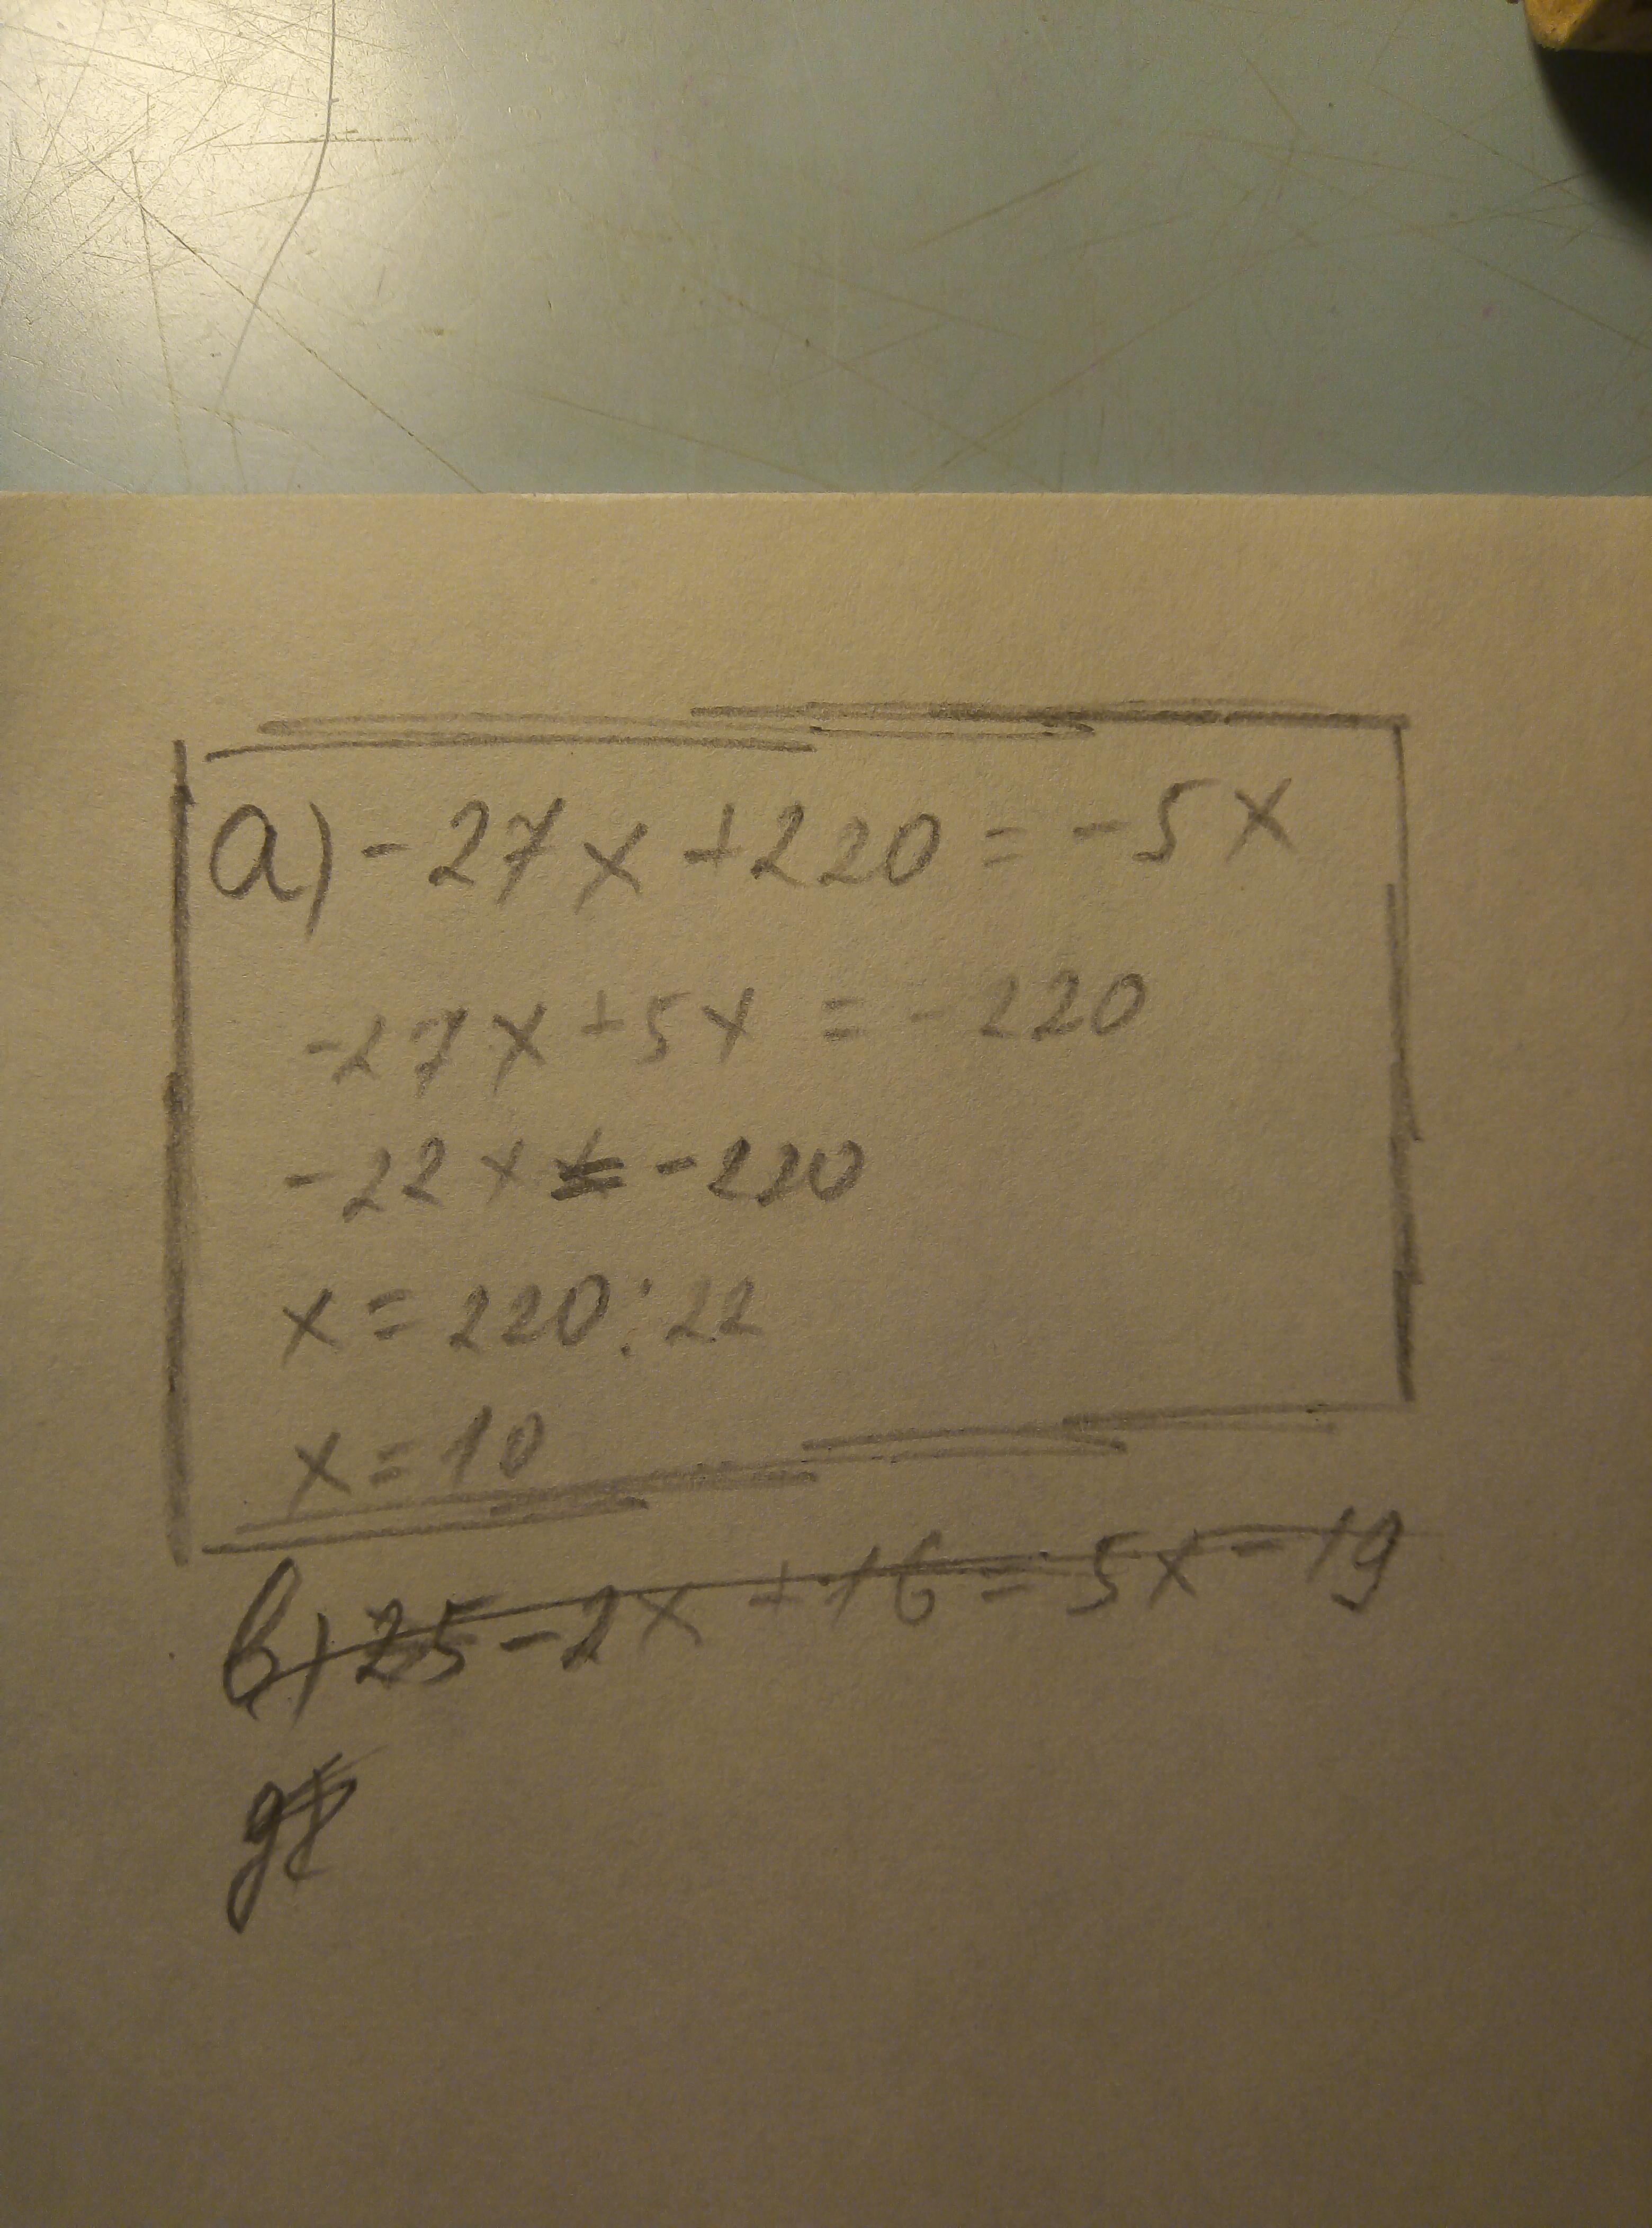 а) -27x +220 = -5x
-27x +5x = -220
-22x = -220
x = 220:22
x = 10
в) 25 - 2x + 16 = 5x - 19